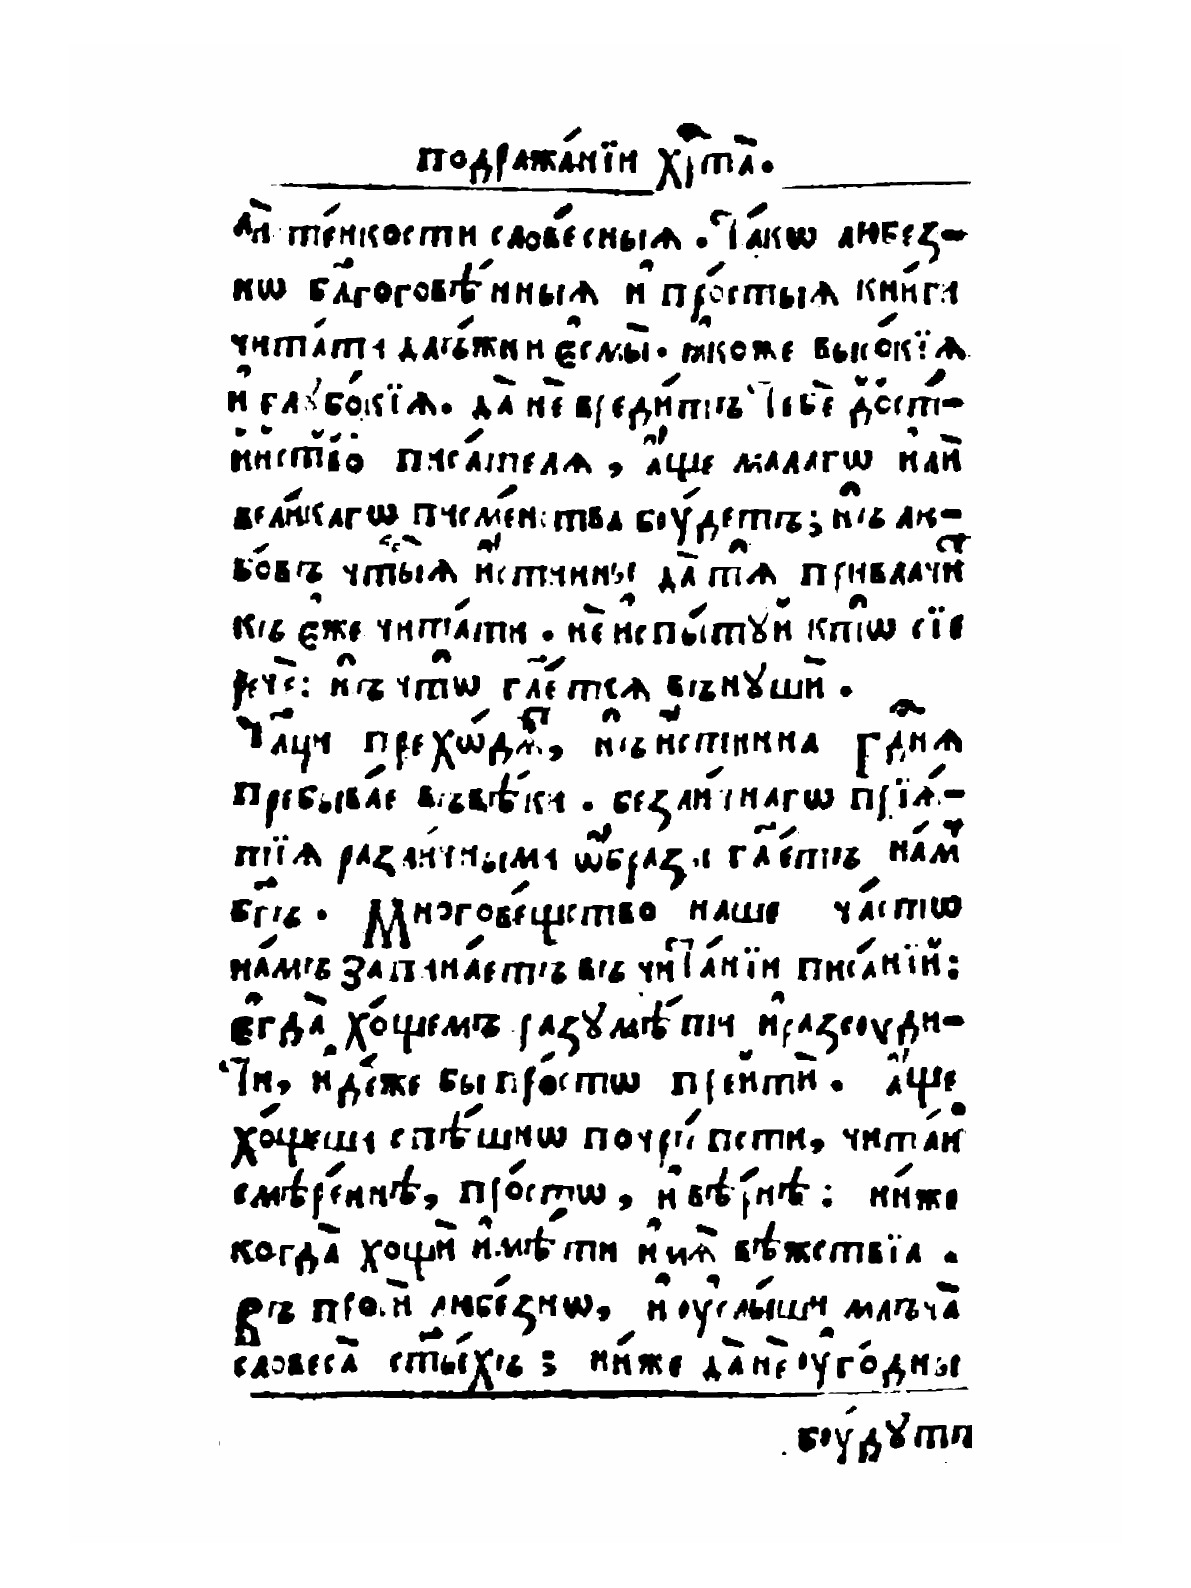 подража́нїи хрⷭ҇та̀.
лѝ те́нкости слове́сныѧ. Та́кѡ любез-
нѡ бл҃гоговѣ́нныѧ и҆ про́стыѧ кни́ги
чита́ти да́лъжни є҆смы̀. ꙗ҆́коже высо́кїѧ
и҆ глꙋбо́кїѧ. да̀ нѐ вреди́тъ тебѐ досто́-
инство писа́телѧ, а҆́ще малагѡ и҆лѝ
вели́кагѡ писме́нства бꙋ́детъ; нъ лю-
бо́въ чⷭ҇тыѧ и҆́стинны да̀ тѧ̀ привлачи́
къ є҆́же чита́ти. нѐ и҆спы́тꙋй ктѡ̀ сїе
речѐ: нъ чтѡ̀ гл҃е́тсѧ вънꙋшѝ.
пре́хѡдѧтъ, нъ и҆́стинна гдⷭ҇нѧ
пребыва́е въвѣ́ки. безли́чнагѡ прїѧ́-
тїѧ разли́чными ѡ҆́бразы гл҃е́тъ на́м
бг҃ъ. Многовѣ́щество наше ча́стѡ
на́мъ запина́етъ въ чита́нїи писа́нїй:
є҆гда̀ хо́щемъ разꙋмѣ́ти и҆ разсꙋди-
ти, и҆дѣ́же бы про́стѡ преитѝ. а҆́ще
хо́щеши спѣ́шнѡ почрепсти, чита́й
смѣре́ннѣ, про́стѡ, и҆ вѣ́рнѣ: ни́же
когда̀ хощѝ и҆мѣ́ти и҆мѧ̀ вѣ́жествїа.
любе́знѡ, и҆ ᲂу҆слы́ши млъча̀
словеса̀ ст҃ы́хъ; ни́же да̀ нѐ ᲂу҆го́дны
бꙋ́дꙋтъ